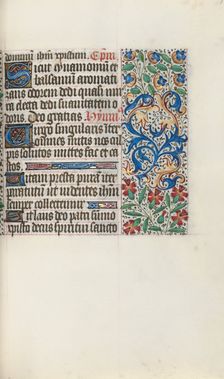 dominum ihm xpistum. Epm̄.
Sicut cynamomum et
balsamum aromati
zans odorem dedi quasi mir
ra electa dedi suavitatem o
doris. Deo gratias. Hymn
Virgo singularis iter
omnes mitis nos cul
pis solutos mites fac et cas
tos.
Vitam presta puram iter
para tutum ut videntes ihm
semper collectemur
Sit laus deo patri summo
xpisto decus spiritui sancto